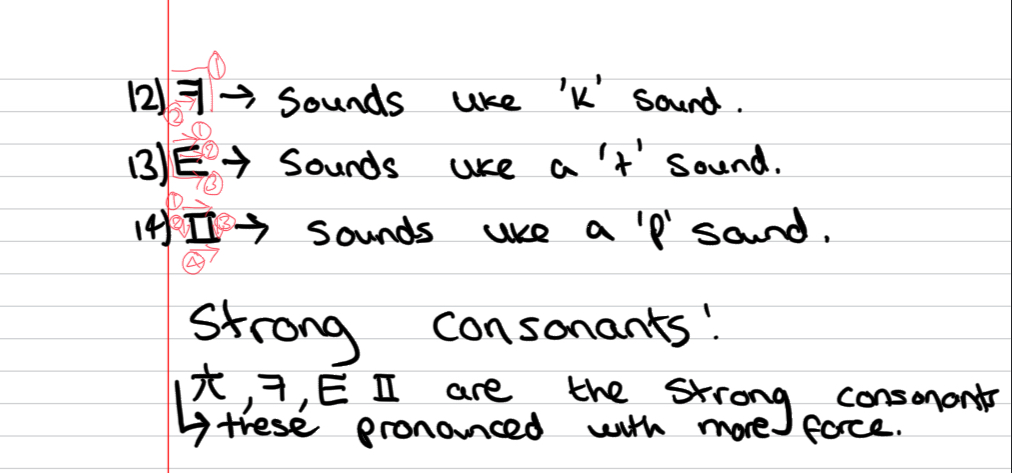 12) ㅋ → Sounds like 'K' sound.
13) ㅌ → Sounds like a 't' sound.
14) ㅍ → Sounds like a 'p' sound.
Strong consonants:
ㅊ, ㅋ, ㅌ ㅍ are the strong consonants
↳ these pronounced with more force.